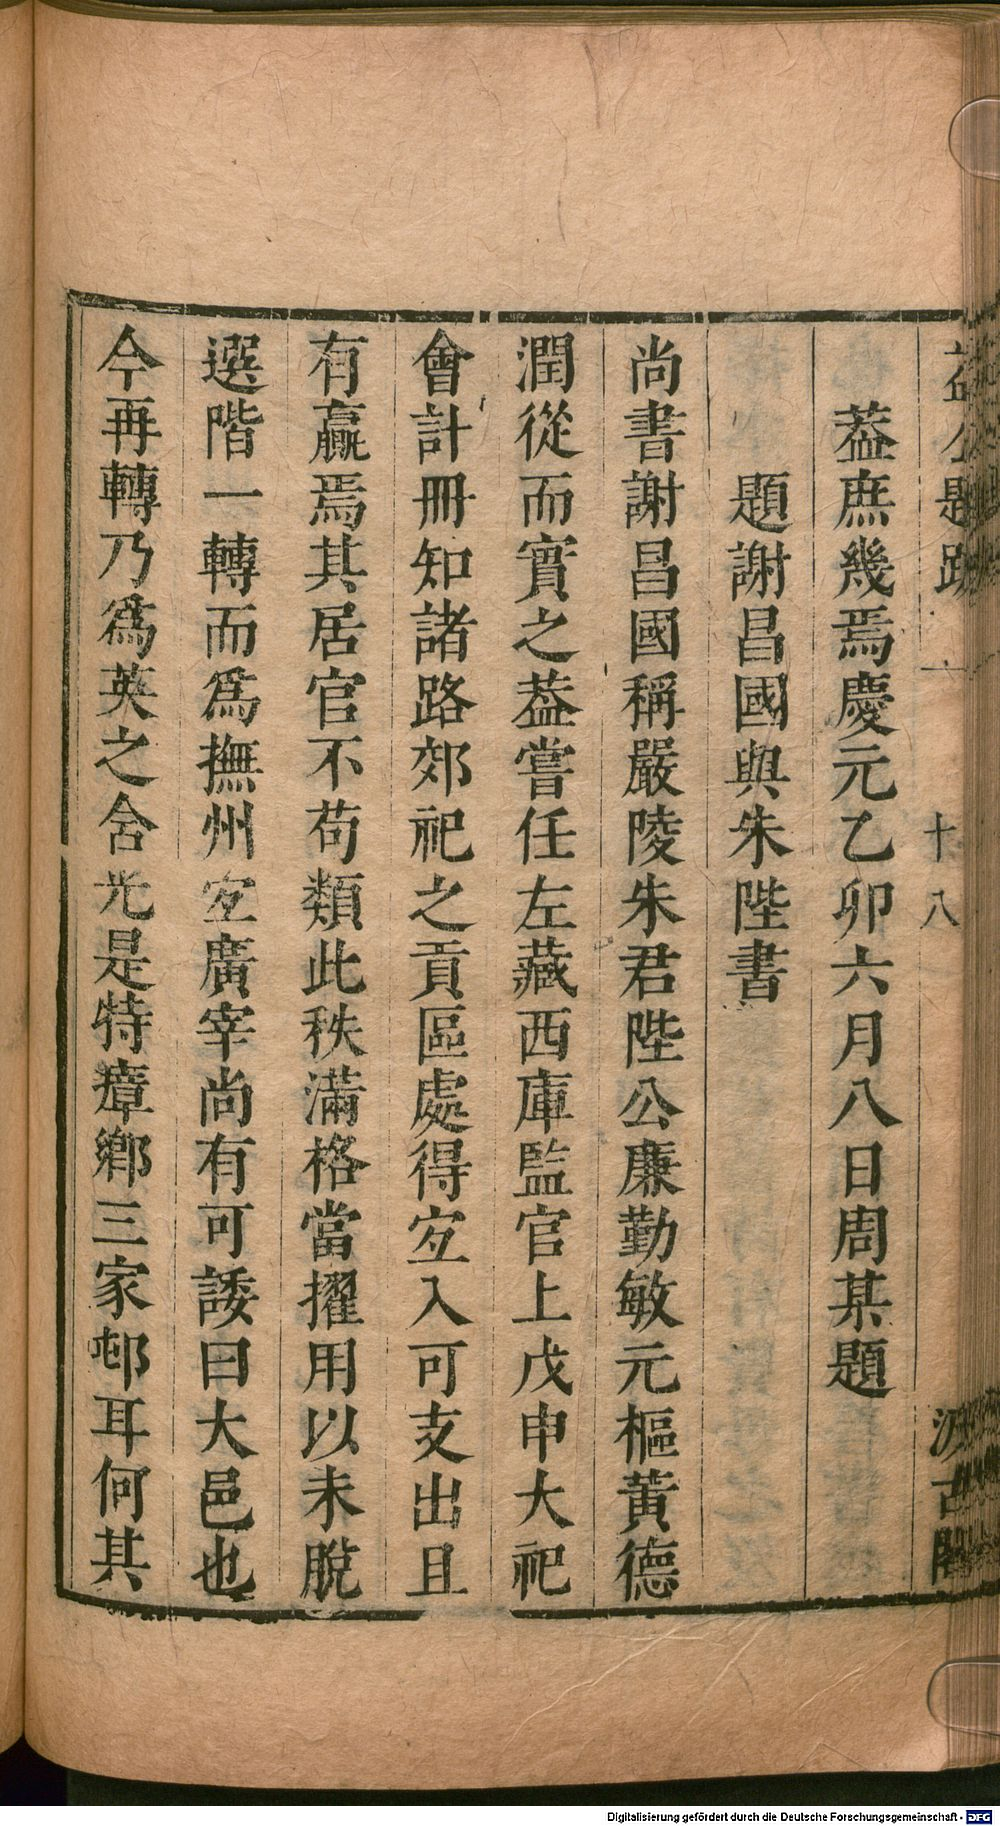 益公題跋 十八 汲古閣
葢庶幾焉慶元乙卯六月八日周某題
題謝昌國與朱陛書
尚書謝昌國稱嚴陵朱君陛公廉勤敏元樞黃德
潤從而實之葢嘗任左藏西庫監官上戊申大祀
會計冊知諸路郊祀之貢區處得宐入可支出且
有贏焉其居官不苟類此秩滿格當擢用以未脫
選階一轉而爲撫州宐廣宰尚有可諉曰大邑也
今再轉乃爲英之含光是特瘴鄉三家邨耳何其
Digitalisierung gefördert durch die Deutsche Forschungsgemeinschaft - DFG